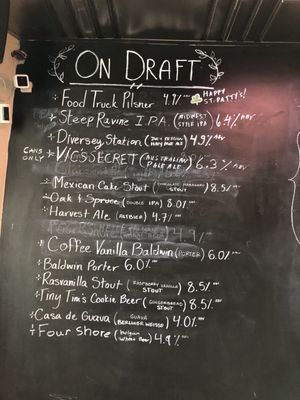 ON DRAFT
HAPPY
ST. PATTY'S!
Food Truck Pilsner 4.9% ABV
Steep Ravine I.P.A. (MIDWEST STYLE IPA) 6.4% ABV
Diversey Station 4.9% ABV
CANS ONLY
VICSSECRET (AUSTRALIAN PALE ALE) 6.3% ABV
Mexican Cake Stout (CHOCOLATE HABANERO STOUT) 8.5% ABV
Oak & Spruce (DOUBLE IPA) 8.0% ABV
Harvest Ale (ALTBIER) 4.7% ABV
Coffee Vanilla Baldwin (PORTER) 6.0% ABV
Baldwin Porter 6.0% ABV
Rasvanilla Stout (RASPBERRY VANILLA STOUT) 8.5% ABV
Tiny Tim's Cookie Beer (GINGERBREAD STOUT) 8.5% ABV
Casa de Guava (GUAVA BERLINER WEISSE) 4.0% ABV
Four Shore (Belgian Wheat Beer) 4.9% ABV